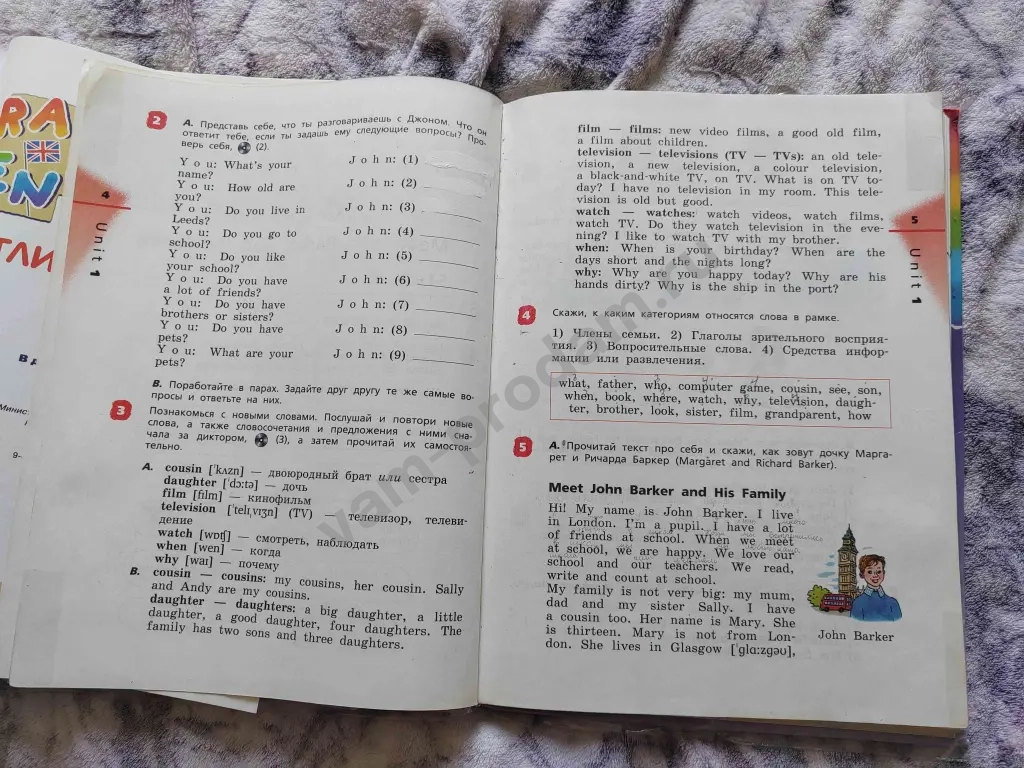 RA
EN
ТЛИ
В
Минис
9–
4
Unit 1
2
А. Представь себе, что ты разговариваешь с Джоном. Что он
ответит тебе, если ты задашь ему следующие вопросы? Про-
верь себя, (2).
You: What's your John: (1)
name?
You: How old are John: (2)
you?
You: Do you live in John: (3)
Leeds?
You: Do you go to John: (4)
school?
You: Do you like John: (5)
your school?
You: Do you have John: (6)
a lot of friends?
You: Do you have John: (7)
brothers or sisters?
You: Do you have John: (8)
pets?
You: What are your John: (9)
pets?
В. Поработайте в парах. Задайте друг другу те же самые во-
просы и ответьте на них.
3
Познакомься с новыми словами. Послушай и повтори новые
слова, а также словосочетания и предложения с ними сна-
чала за диктором, (3), а затем прочитай их самостоя-
тельно.
A. cousin [ˈkʌzn] — двоюродный брат или сестра
daughter [ˈdɔːtə] — дочь
film [fɪlm] — кинофильм
television [ˈtelɪˌvɪʒn] (TV) — телевизор, телеви-
дение
watch [wɒtʃ] — смотреть, наблюдать
when [wen] — когда
why [waɪ] — почему
B. cousin — cousins: my cousins, her cousin. Sally
and Andy are my cousins.
daughter — daughters: a big daughter, a little
daughter, a good daughter, four daughters. The
family has two sons and three daughters.
film — films: new video films, a good old film,
a film about children.
television — televisions (TV — TVs): an old tele-
vision, a new television, a colour television,
a black-and-white TV, on TV. What is on TV to-
day? I have no television in my room. This tele-
vision is old but good.
watch — watches: watch videos, watch films,
watch TV. Do they watch television in the eve-
ning? I like to watch TV with my brother.
when: When is your birthday? When are the
days short and the nights long?
why: Why are you happy today? Why are his
hands dirty? Why is the ship in the port?
5
Unit 1
4
Скажи, к каким категориям относятся слова в рамке.
1) Члены семьи. 2) Глаголы зрительного восприя-
тия. 3) Вопросительные слова. 4) Средства инфор-
мации или развлечения.
what, father, who, computer game, cousin, see, son,
when, book, where, watch, why, television, daugh-
ter, brother, look, sister, film, grandparent, how
5
А. Прочитай текст про себя и скажи, как зовут дочку Марга-
рет и Ричарда Баркер (Margaret and Richard Barker).
Meet John Barker and His Family
Hi! My name is John Barker. I live
in London. I'm a pupil. I have a lot
of friends at school. When we meet
at school, we are happy. We love our
school and our teachers. We read,
write and count at school.
My family is not very big: my mum,
dad and my sister Sally. I have
a cousin too. Her name is Mary. She
is thirteen. Mary is not from Lon-
don. She lives in Glasgow [ˈglɑːzgəʊ],
John Barker
vam-prodam.ru